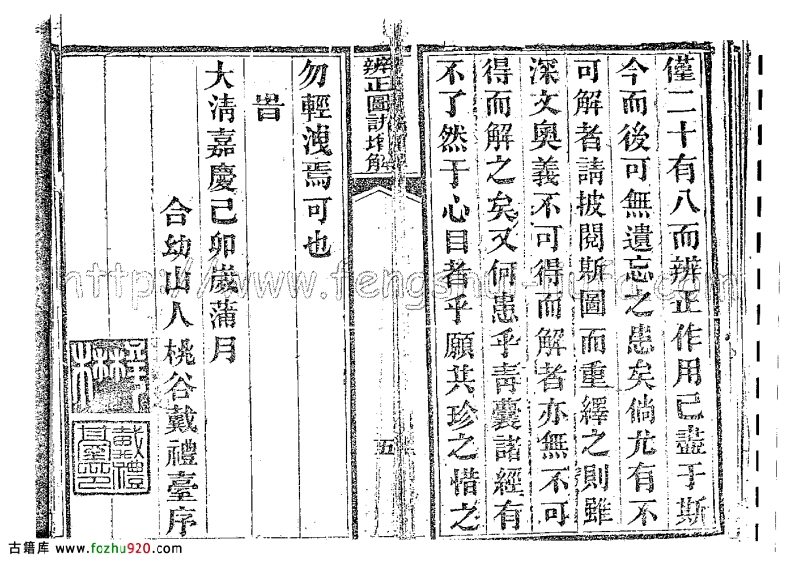 僅二十有八而辨正作用已盡于斯
今而後可無遺忘之患矣倘尤有不
可解者請披閱斯圖而重繹之則雖
深文奧義不可得而解者亦無不可
得而解之矣又何患乎靑囊諸經有
不了然于心目者乎願共珍之惜之
辨正圖訣
解
五
勿輕洩焉可也
旹
大清嘉慶己卯歲蒲月
合幼山人桃谷戴禮臺序
戴禮臺印
http://www.fengshui-hufo.com
古籍库 www.fozhu920.com